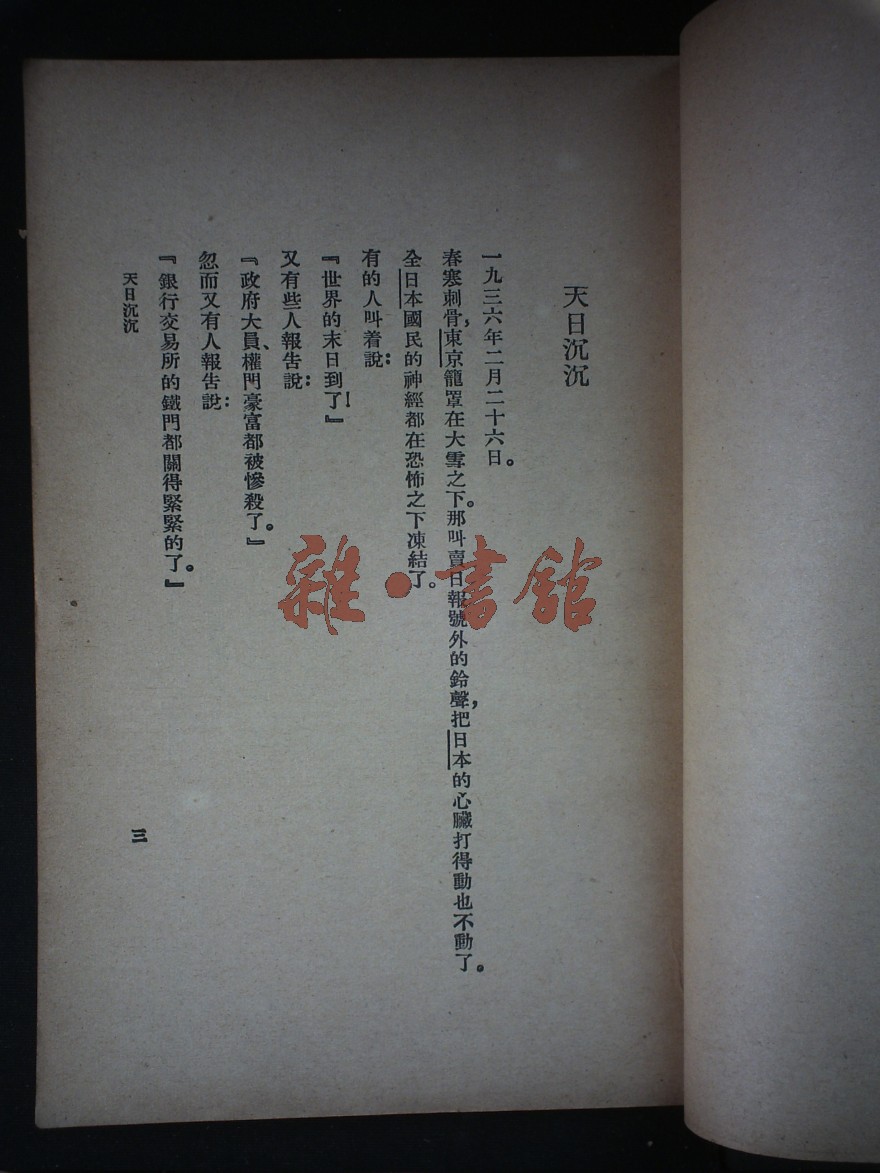 天日沉沉
一九三六年二月二十六日。
春寒刺骨，東京籠罩在大雪之下。那叫賣日報號外的鈴聲，把日本的心臟打得動也不動了。
全日本國民的神經都在恐怖之下凍結了。
有的人叫着說：
『世界的末日到了！』
又有些人報告說：
『政府大員、權門豪富都被慘殺了。』
忽而又有人報告說：
『銀行交易所的鐵門都關得緊緊的了。』
天日沉沉
三
雜·書館